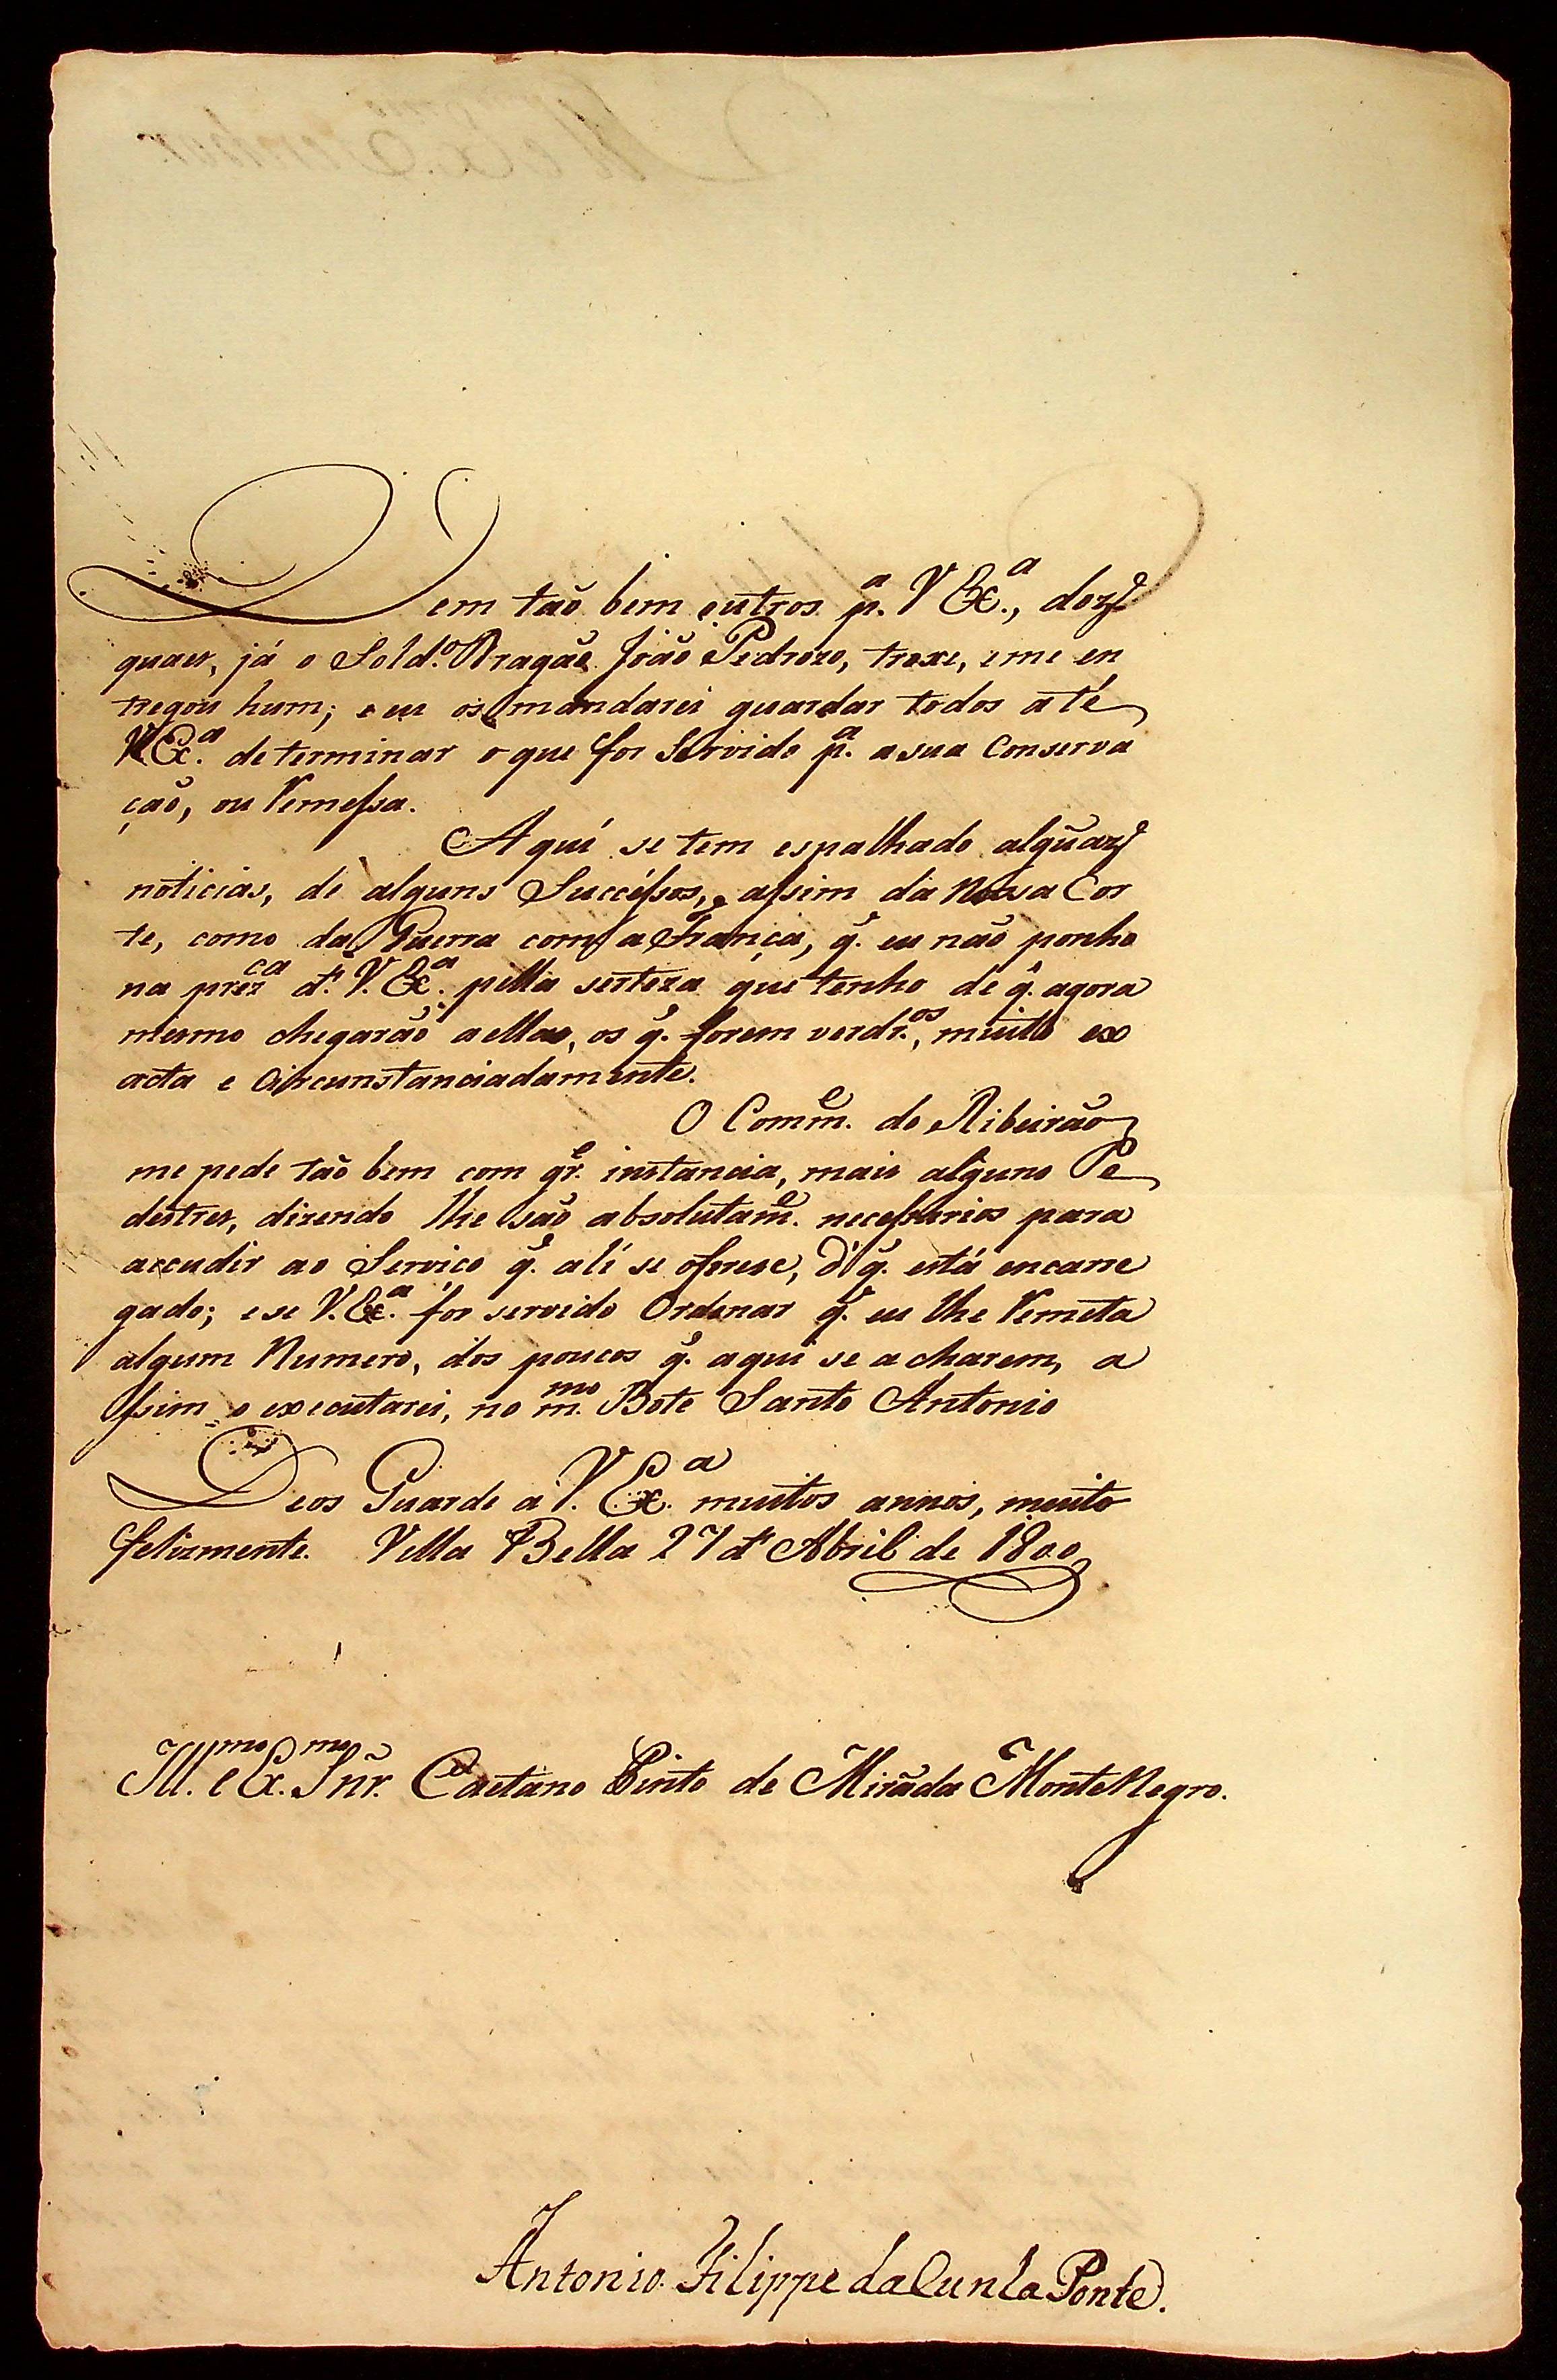 Vem taõ bem outros p.ª V Ex.ª, doz
quaes, já o Sold.º Dragaõ Joaõ Pedrozo, troxe, e me en
tregou hum; e eu os mandarei guardar todos até
V Ex.ª determinar o que for Servido p.ª a sua Conserva
çaõ, ou Remessa.
Aquí se tem espalhado alguaz
noticias, de alguns Succéssos, assim da Nossa Cor
te, como da Guerra com a França, q̃. eu naõ ponho
na prez.ca d.e V. Ex.ª pella serteza que tenho de q̃. agora
mesmo chegaraõ a ellas, os q̃. forem verdr.os, muito ex
acta e Circunstanciadamente.
O Comm.e do Ribeiraõ
me pede taõ bem com gr.e instancia, mais alguns Pe
destres, dizendo lhe saõ absolutam.e necessarios para
accudir ao Servico q̃. alí se oferese, d' q̃. está encarre
gado; e se V. Ex.ª for servido Ordenar q̃. eu lhe Remeta
algum Numero, dos poucos q̃. aqui se acharem, a
ssim o executarei, no m.mo Bote Santo Antonio
Deos Guarde a V. Ex.ª muitos annos, muito
felizmente. Villa Bella 27 d.e Abril de 1800
Ill.mo e Ex.mo Snr̃. Caetano Pinto de Mirãda MonteNegro.
Antonio Filippe da Cunha Ponte.